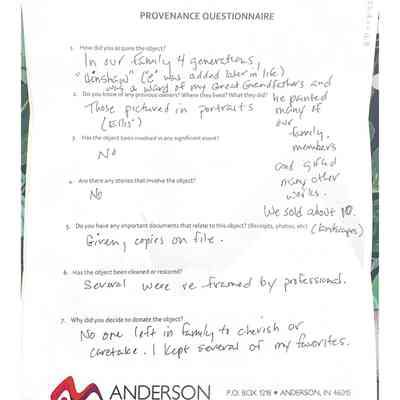 PROVENANCE QUESTIONNAIRE
1. How did you acquire the object?
In our family 4 generations,
"Dinshaw" ("e" was added later in life)
was a ward of my Great Grandfathers and
he painted
many of
our
family.
members
and gifted
many other
works.
We sold about 10.
(landscapes)
2. Do you know of any previous owners? Where they lived? What they did?
Those pictured in portraits
(Ellis')
3. Has the object been involved in any significant event?
No
4. Are there any stories that involve the object?
No
5. Do you have any important documents that relate to this object? (Receipts, photos, etc)
Given, copies on file.
6. Has the object been cleaned or restored?
Several were re-framed by professional.
7. Why did you decide to donate the object?
No one left in family to cherish or
caretake. I kept several of my favorites.
ANDERSON
P.O. BOX 1218 • ANDERSON, IN 46015